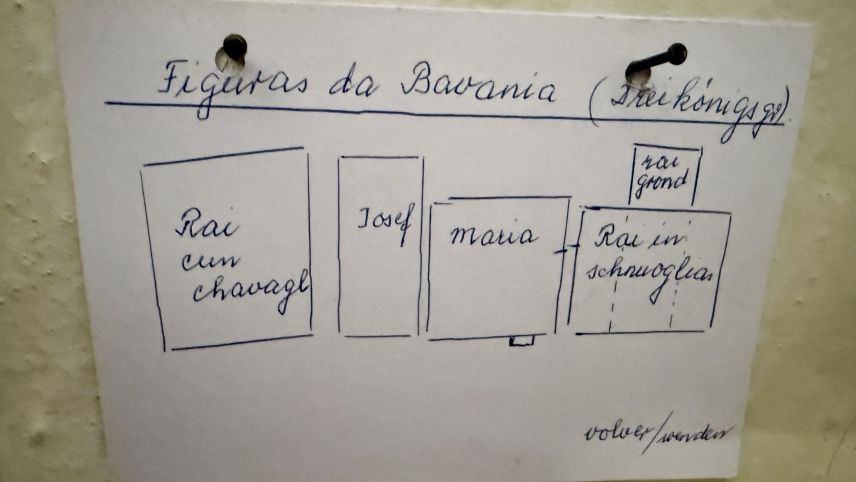 Figuras da Bavania (Dreikönigsgr.)
rai
grond
Rai
cun
chavagl
Josef
Maria
Rai in
schnuoglias
volver/wenden